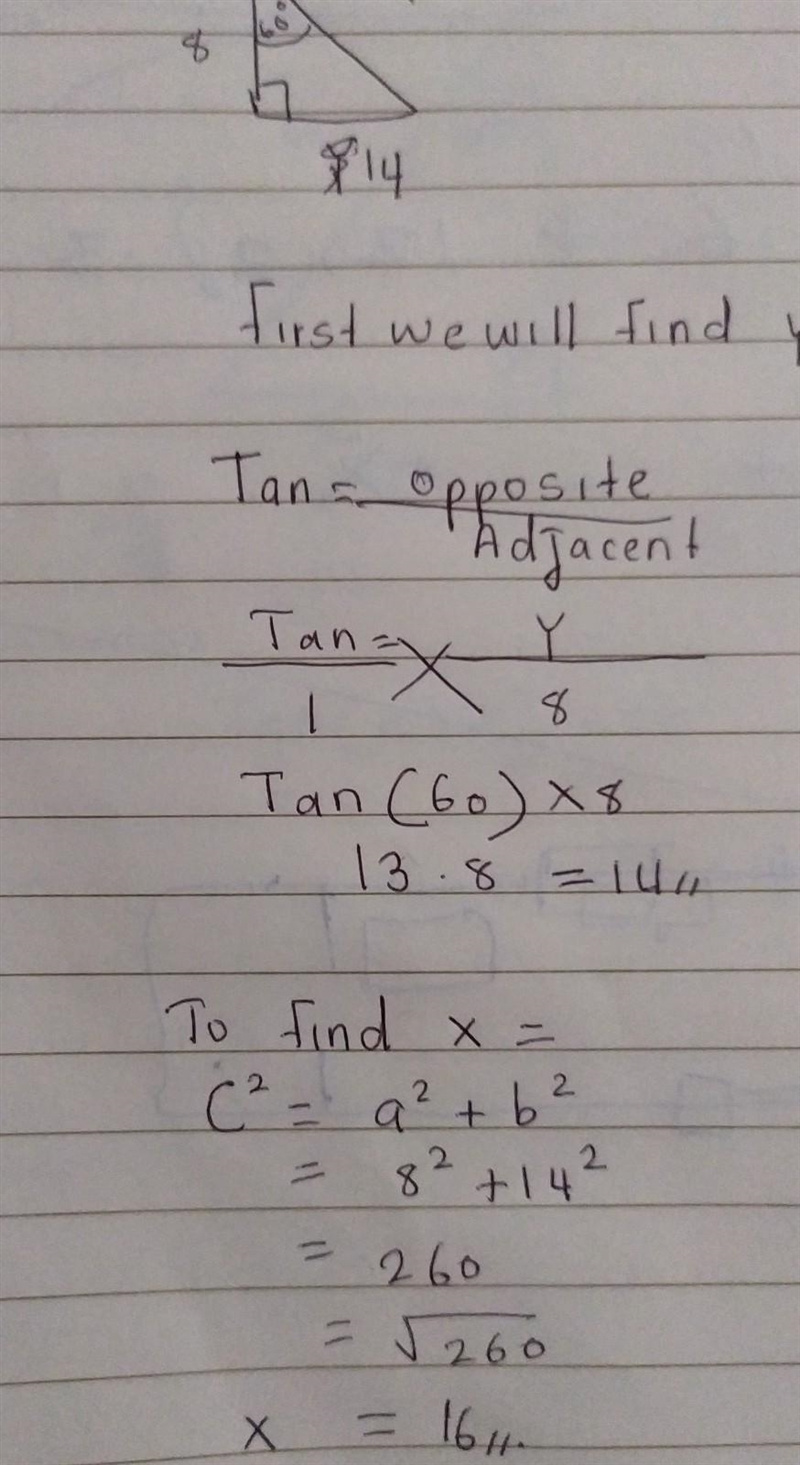 60°
8
14
first we will find y
Tan = opposite
Adjacent
Tan = Y
1 8
Tan (60) × 8
13.8 = 14 //
To find x =
C² = a² + b²
= 8² + 14²
= 260
= √260
x = 16 //.